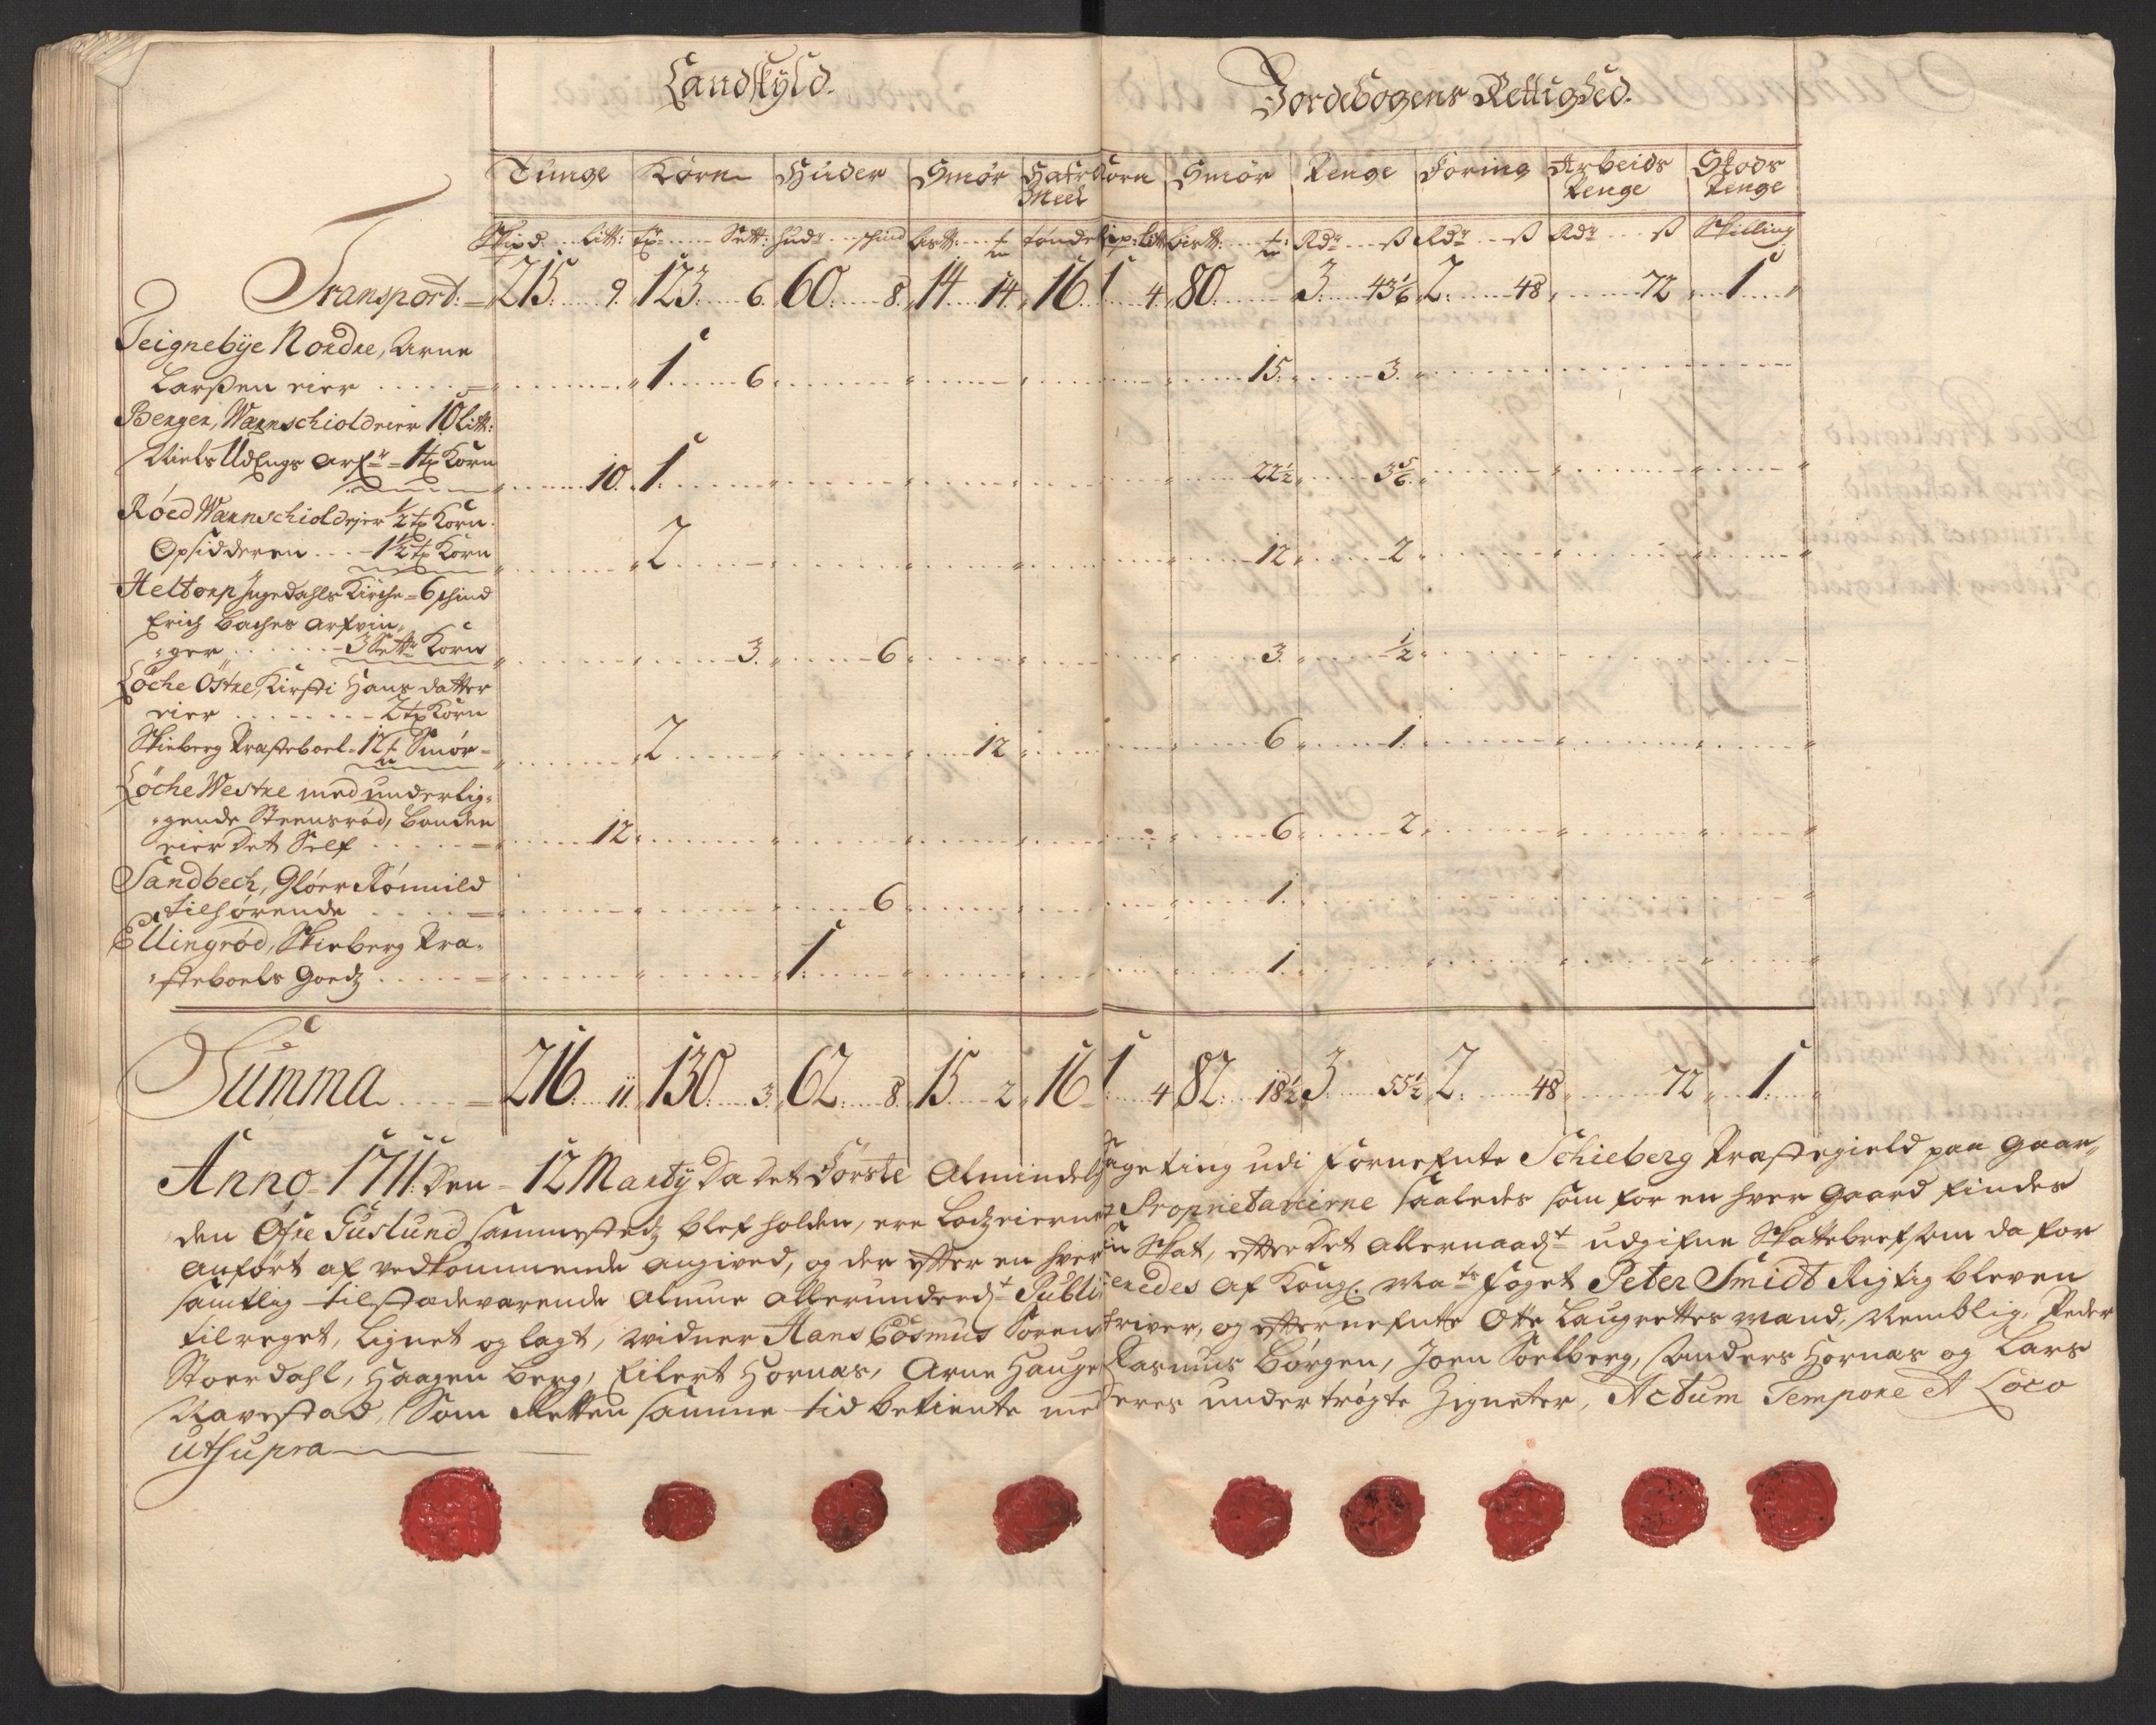 Landskÿld.
Jordebogens Rettighed.
Tunge Korn Huder Smör Hafre Korn Smör Penge Foring Arbeids Skods
Meel Penge Penge
Skipd. Litt: tp Sett: Hudr schind bistt: tønde tp: bistt: Rdr ß Rdr ß Rdr ß Skilling
Transport: 215 9 123 6 60 8 14 14 16 1 4 80 3 43 1/6 2 48 72 1
Teignebÿe Nordre, Arne
Larßen eier 1 6 15 3
Berger, Warnschiold eier 10 Litt:
Niels Udengs arfr 1 tp Korn 10 1 22½ 3 5/6
Röed Warnschiold ejer ½ tp Korn
Opsidderen 1½ tp Korn 2 12 2
Heltorp Ingedahls Kirche 6 schind
Erich Baches arfvin-
ger 3 Settr Korn 3 6 3 ½
Löche Östre, Kirsti Hans datter
eier 2 tp Korn
Skieberg Præsteboel 12 Smör 2 12 6 1
Löche Westre med underlig-
gende Steensröd, Bonden
eier det Self 12 6 2
Sandbech, Glöer Rönnild
tilhørende 6 1
Ellingröd, Skieberg Præ-
steboels Goedz 1 1
Summa 216 11 130 3 62 8 15 2 16 1 4 82 18½ 3 55½ 2 48 72 1
Anno 1711 den 12 Martÿ da det Förste Almindelig Sageting udi förnefnte Schieberg Præstegield paa gaar-
den Øfre Tuslund sammestedz blef holden, ere Lodzeierne Proprietarierne saaledes som for en hver Gaard findes
anført af vedkommende angived, og der efter en hver sin Skat, efter det allernaadst udgifne Skattebref som da for
samtlig tilstædeværende almue allerunderdst Publiceredes af Kongl. Mayts foget Peter Smidt Rigtig bleven
tilreget, lignet og lagt, widner Hans Cosmus Sorenskriver, og efternefnte Otte Laugrettes mænd, Nemblig, Peder
Stoerdahl, Haagen Berg, Eilert Hornæs, Arne Hauge Rasmus Börgen, Joen Soelberg, Anders Hornæs og Lars
Navestad, Som Retten samme tid betiente med deres undertrögte Zigneter, Actum Tempore et Loco
utsupra